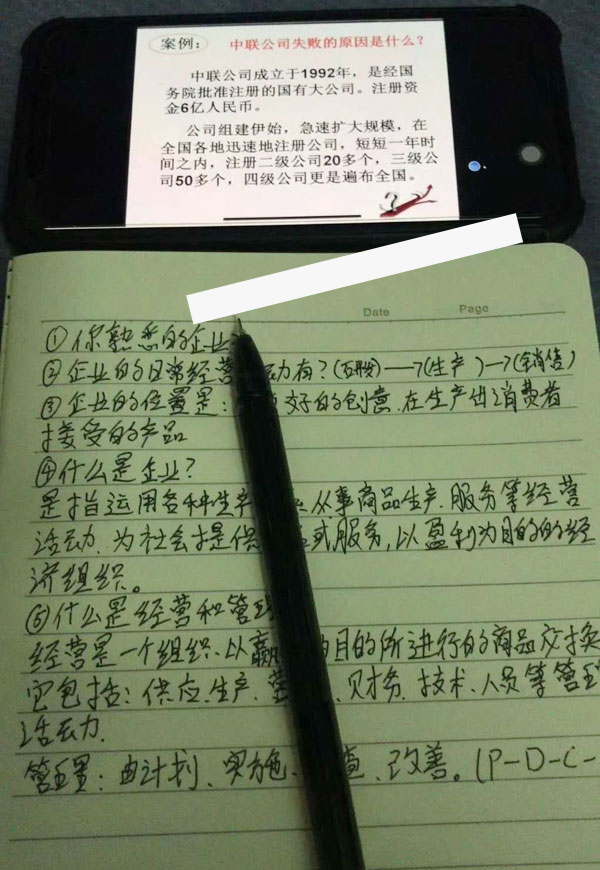 案例：
中联公司失败的原因是什么？
中联公司成立于1992年，是经国
务院批准注册的国有大公司。注册资
金6亿人民币。
公司组建伊始，急速扩大规模，在
全国各地迅速地注册公司，短短一年时
间之内，注册二级公司20多个，三级公
司50多个，四级公司更是遍布全国。
Date Page
①你熟悉的企业
②企业的日常经营 动有？(研发)—→(生产)—→(销售)
③企业的位置是： 好的创意.在生产出消费者
接受的产品
④什么是企业？
是指运用各种生产 从事商品生产.服务等经营
活动.为社会提供 或服务,以盈利为目的的经
济组织。
⑤什么是经营和管理
经营是一个组织.以赢 为目的所进行的商品交换
它包括：供应.生产.营 、财务.技术.人员等管理
活动.
管理：由计划、实施、 查、改善。(P-D-C-